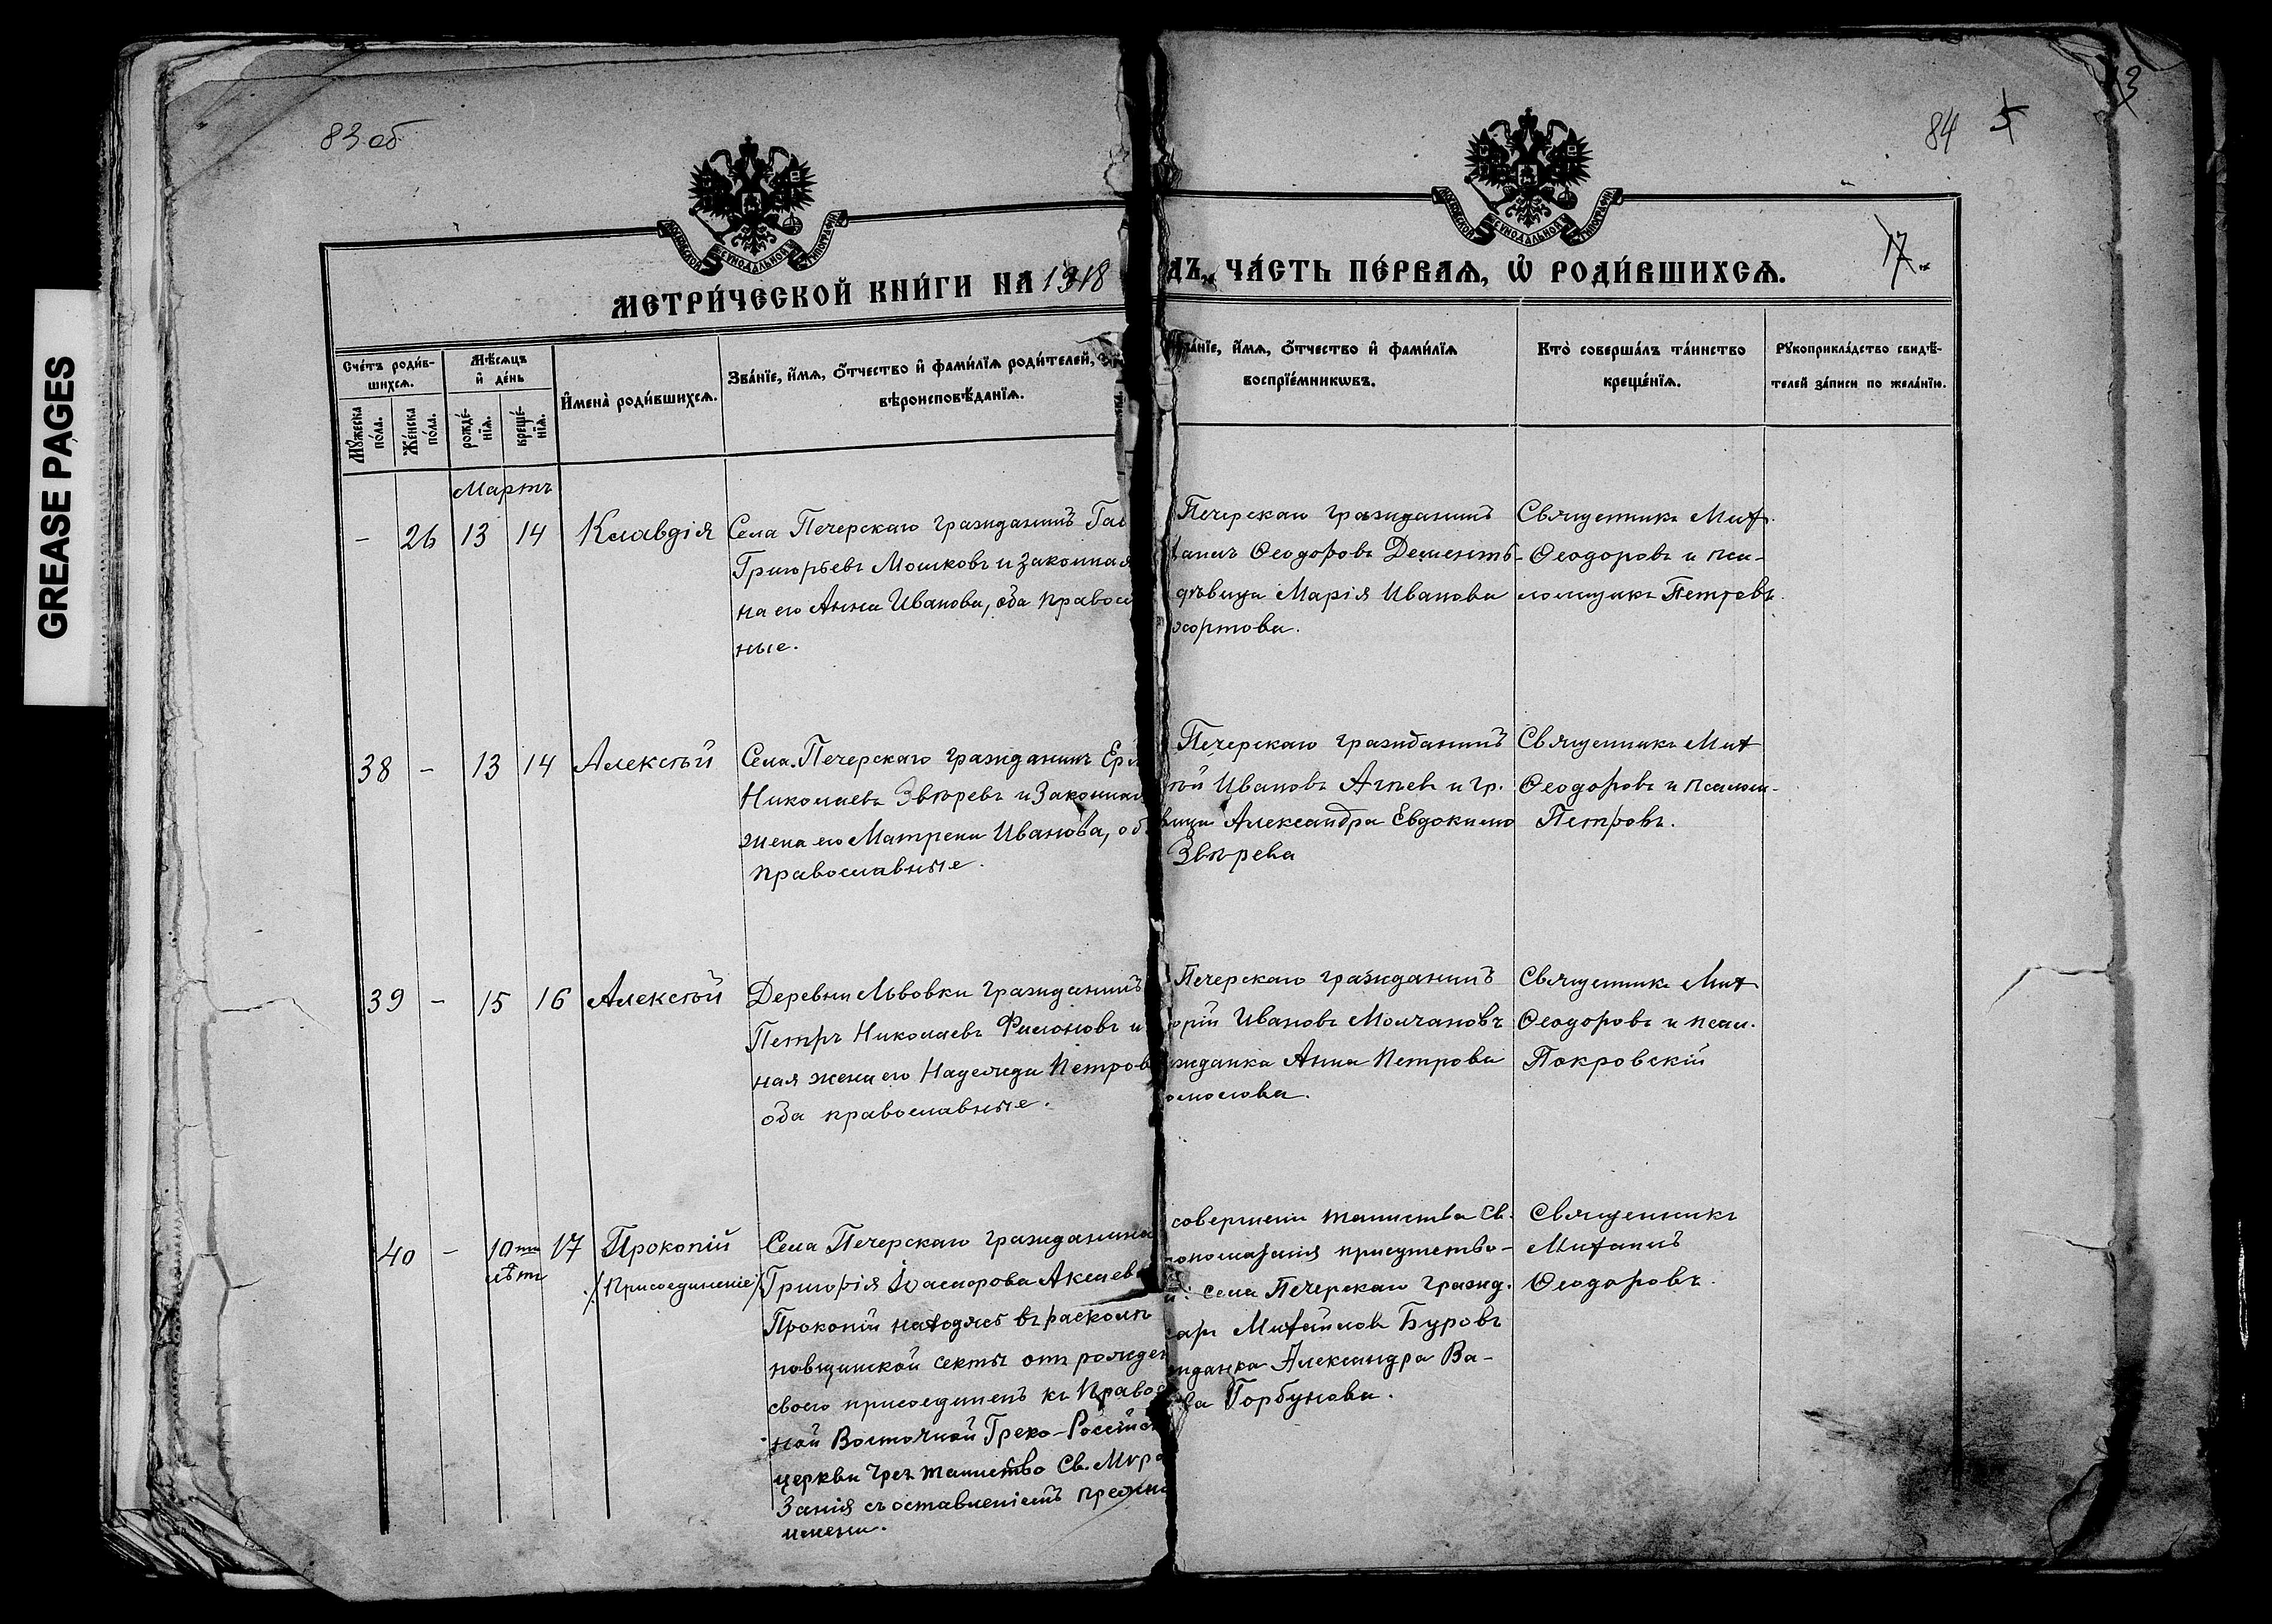 GREASE PAGES
83 об
84 5
3
МОСКОВСКОЙ СѴНОДАЛЬНОЙ ТИПОГРАФІИ
МОСКОВСКОЙ СѴНОДАЛЬНОЙ ТИПОГРАФІИ
17.
МЕТРИ́ЧЕСКОЙ КНИ́ГИ НА 1918
ДЪ, ЧА́СТЬ ПЕ́РВАѦ, Ѡ҆ РОДИ́ВШИХСѦ.
Сче́тъ роди́в-
шихсѧ.
Мꙋ́жеска по́ла.
Же́нска по́ла.
Мѣ́сѧцъ
и҆ де́нь
рожде́-
нїѧ.
креще́-
нїѧ.
И҆мена̀ роди́вшихсѧ.
Зва́нїе, и҆́мѧ, ѻ҆́тчество и҆ фами́лїѧ роди́телей,
вѣроисповѣ́данїѧ.
Зва́нїе, и҆́мѧ, ѻ҆́тчество и҆ фами́лїѧ
воспрїе́мникѡвъ.
Кто̀ соверша́лъ та́инство
креще́нїѧ.
Рꙋкоприкла́дство свидѣ́-
телей за́писи по жела́нїю.
Мартъ
- 26 13 14 Клавдія
Села Печерскаго гражданинъ
Григорьевъ Мошковъ и законная
на его Анна Иванова, оба правосл
ные.
Печерскаго гражданинъ
Ѳеодоровъ Дементь-
дѣвица Марія Иванова
хортова.
Священникъ Мих.
Ѳеодоровъ и пса-
ломщикъ Петровъ.
38 - 13 14 Алексѣй
Села Печерскаго гражданинъ
Николаевъ Звѣревъ и законная
жена его Матрена Иванова, об
православные.
Печерскаго гражданинъ
Ивановъ Агѣевъ и гр.
вица Александра Евдокимо
Звѣрева
Священникъ Мих
Ѳеодоровъ и псалом-
Петровъ.
39 - 15 16 Алексѣй
Деревни Львовки гражданинъ
Петръ Николаевъ Филоновъ и
ная жена его Надежда Петров
оба православные.
Печерскаго гражданинъ
орій Ивановъ Молчановъ
жданка Анна Петрова
Священникъ Мих
Ѳеодоровъ и псал.
Покровскій
40 - 10ти лѣтъ 17 Прокопій
/Присоединеніе/
Села Печерскаго гражданина
Григорія Акса­ева
Прокопій находясь въ расколѣ
новщинской секты отъ рожден
своего присоединенъ къ Правос
ной Восточной Греко-Россійск
церкви чрез таинство Св. Мѵро
занія съ оставленіемъ прежн
имени.
совершеніи таинства Св.
помазанія присутство-
и: села Печерскаго гражд.
Михайловъ Буровъ
жданка Александра Ва-
ва Горбунова.
Священникъ
Михаилъ
Ѳеодоровъ.